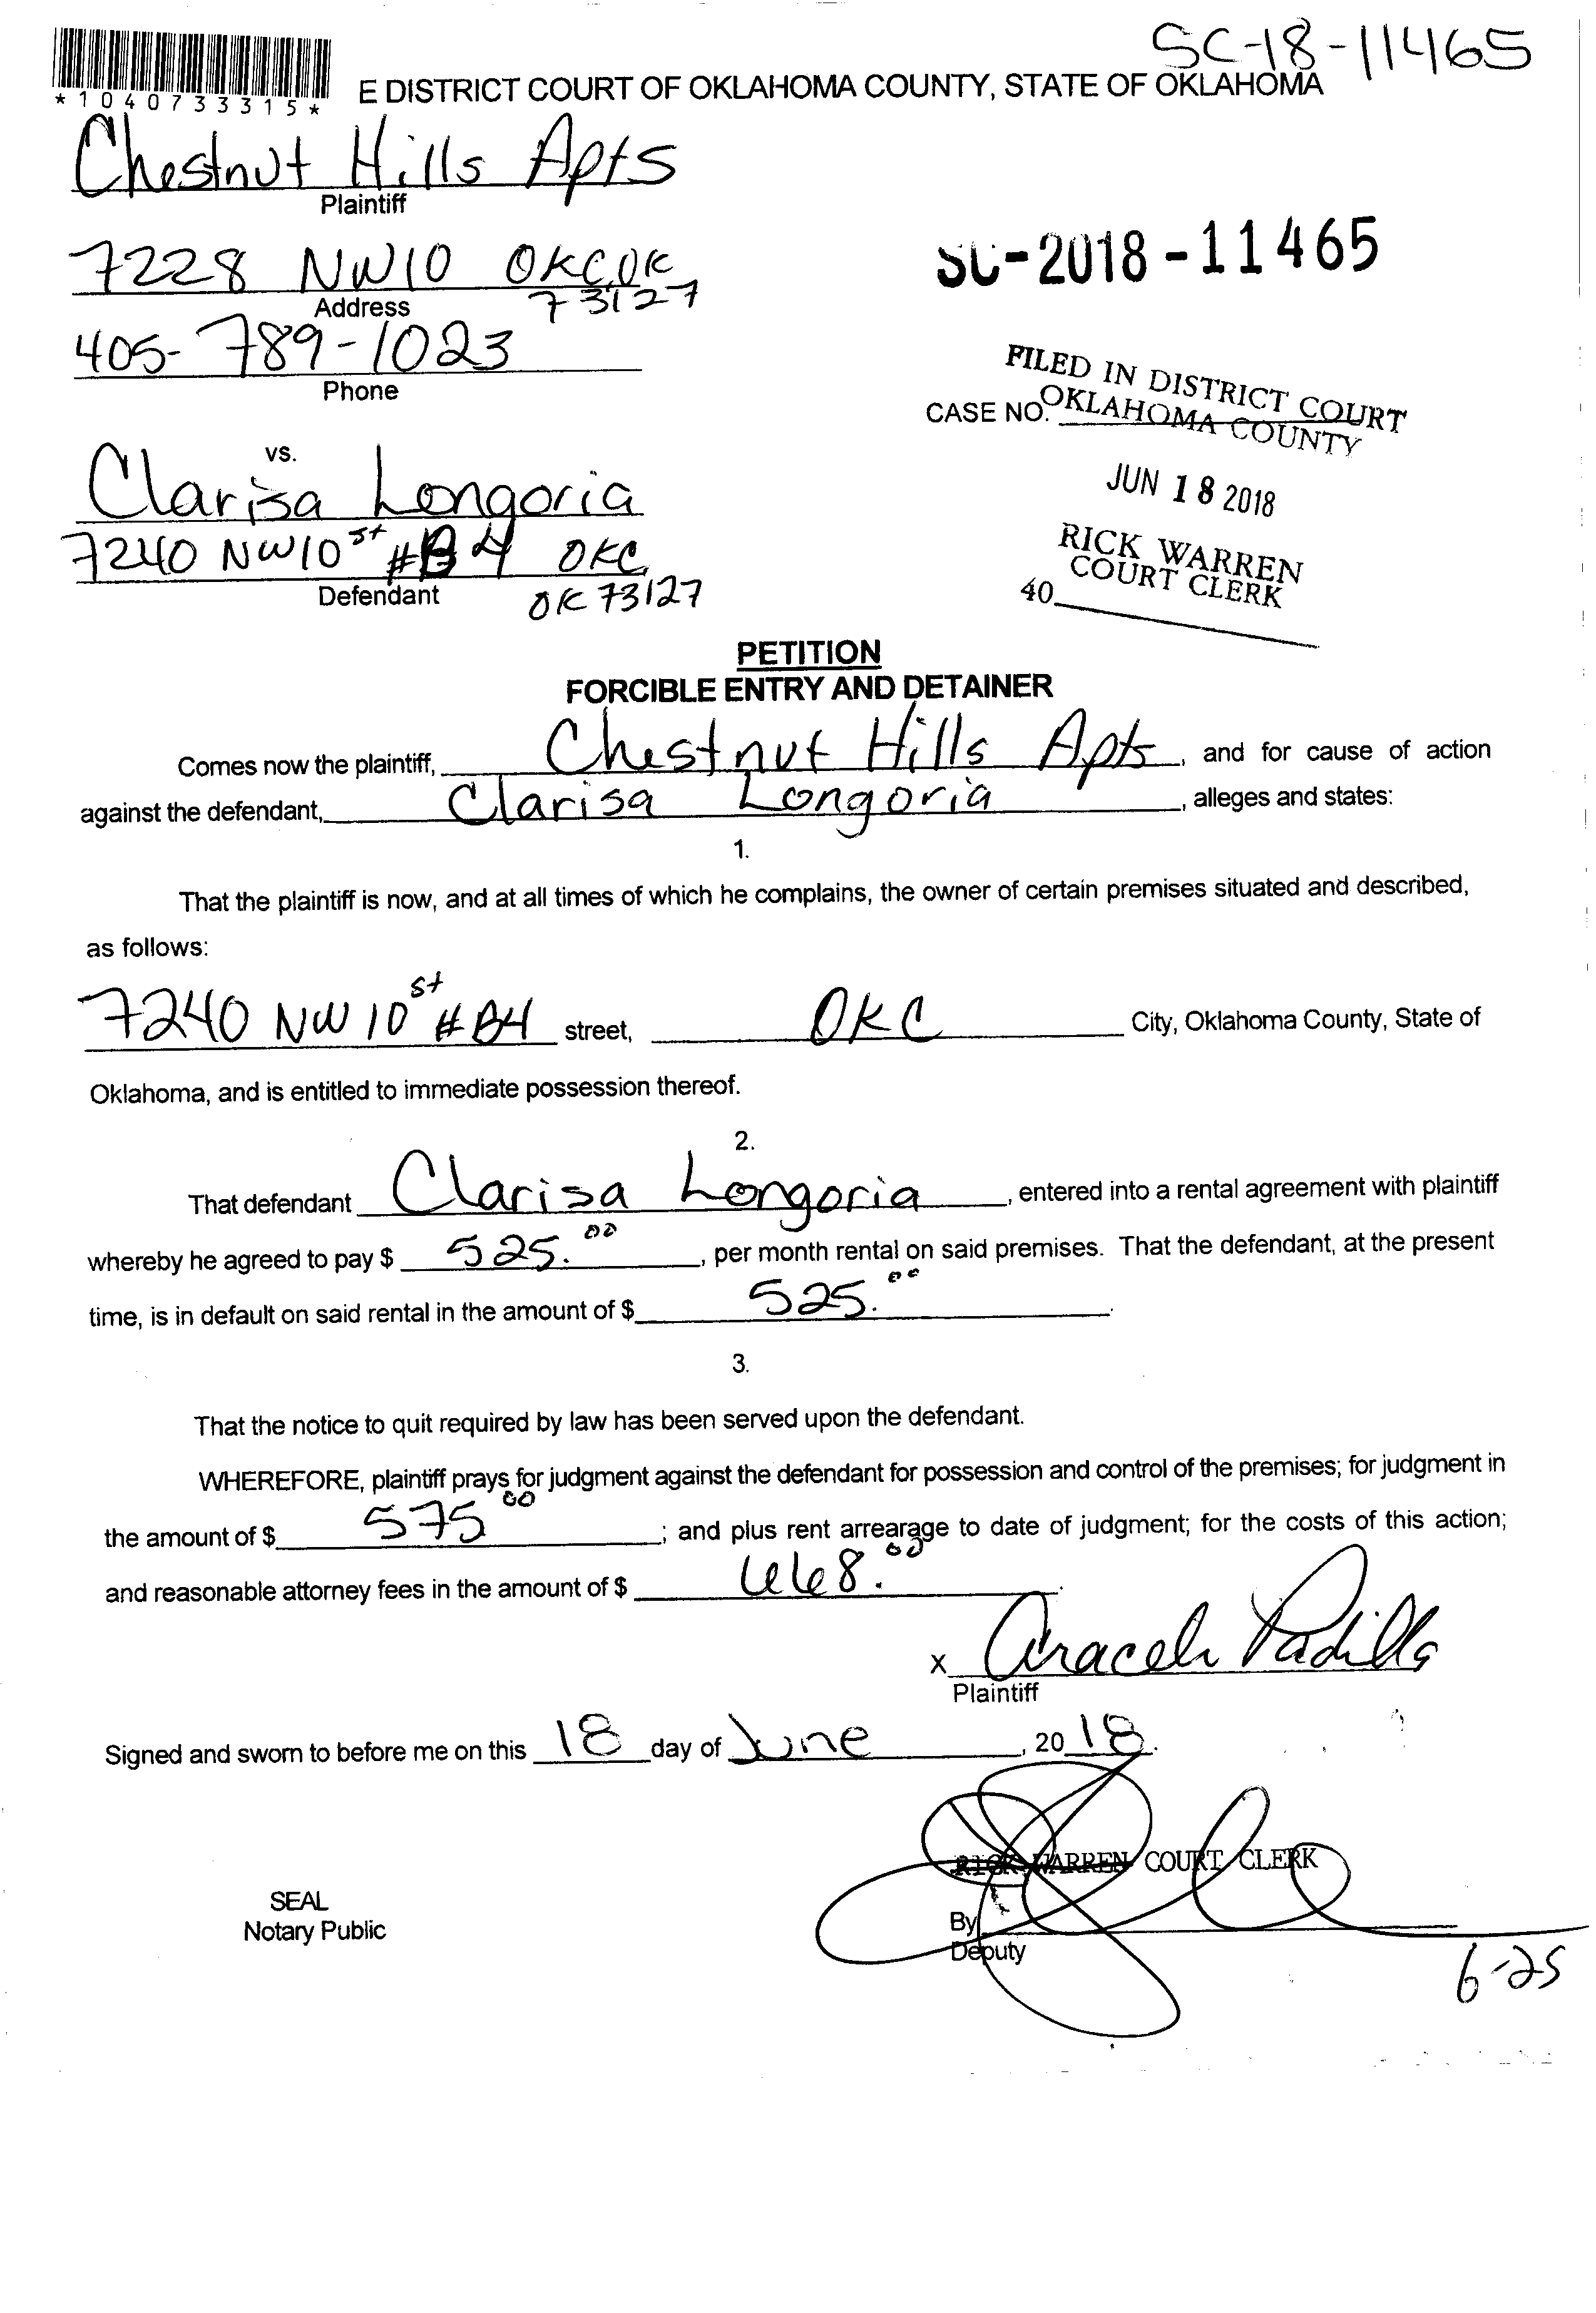 SC-18-11465
*1040733315*
E DISTRICT COURT OF OKLAHOMA COUNTY, STATE OF OKLAHOMA
Chestnut Hills Apts
Plaintiff
7228 NW10 OKC, OK
73127
Address
SC-2018-11465
405-789-1023
Phone
FILED IN DISTRICT COURT
OKLAHOMA COUNTY
CASE NO.
JUN 18 2018
RICK WARREN
COURT CLERK
40
vs.
Clarisa Longoria
7240 NW10 st #B4 OKC
Defendant
OK 73127
PETITION
FORCIBLE ENTRY AND DETAINER
Comes now the plaintiff, Chestnut Hills Apts, and for cause of action
against the defendant, Clarisa Longoria, alleges and states:
1.
That the plaintiff is now, and at all times of which he complains, the owner of certain premises situated and described,
as follows:
7240 NW 10 st #B4 street, OKC City, Oklahoma County, State of
Oklahoma, and is entitled to immediate possession thereof.
2.
That defendant Clarisa Longoria, entered into a rental agreement with plaintiff
whereby he agreed to pay $ 525.00, per month rental on said premises. That the defendant, at the present
time, is in default on said rental in the amount of $ 525.00.
3.
That the notice to quit required by law has been served upon the defendant.
WHEREFORE, plaintiff prays for judgment against the defendant for possession and control of the premises; for judgment in
the amount of $ 575 00; and plus rent arrearage to date of judgment; for the costs of this action;
and reasonable attorney fees in the amount of $ .
x Araceli Padilla
Plaintiff
Signed and sworn to before me on this 18 day of June, 2018.
RICK WARREN COURT CLERK
SEAL
Notary Public
By
Deputy
6-25